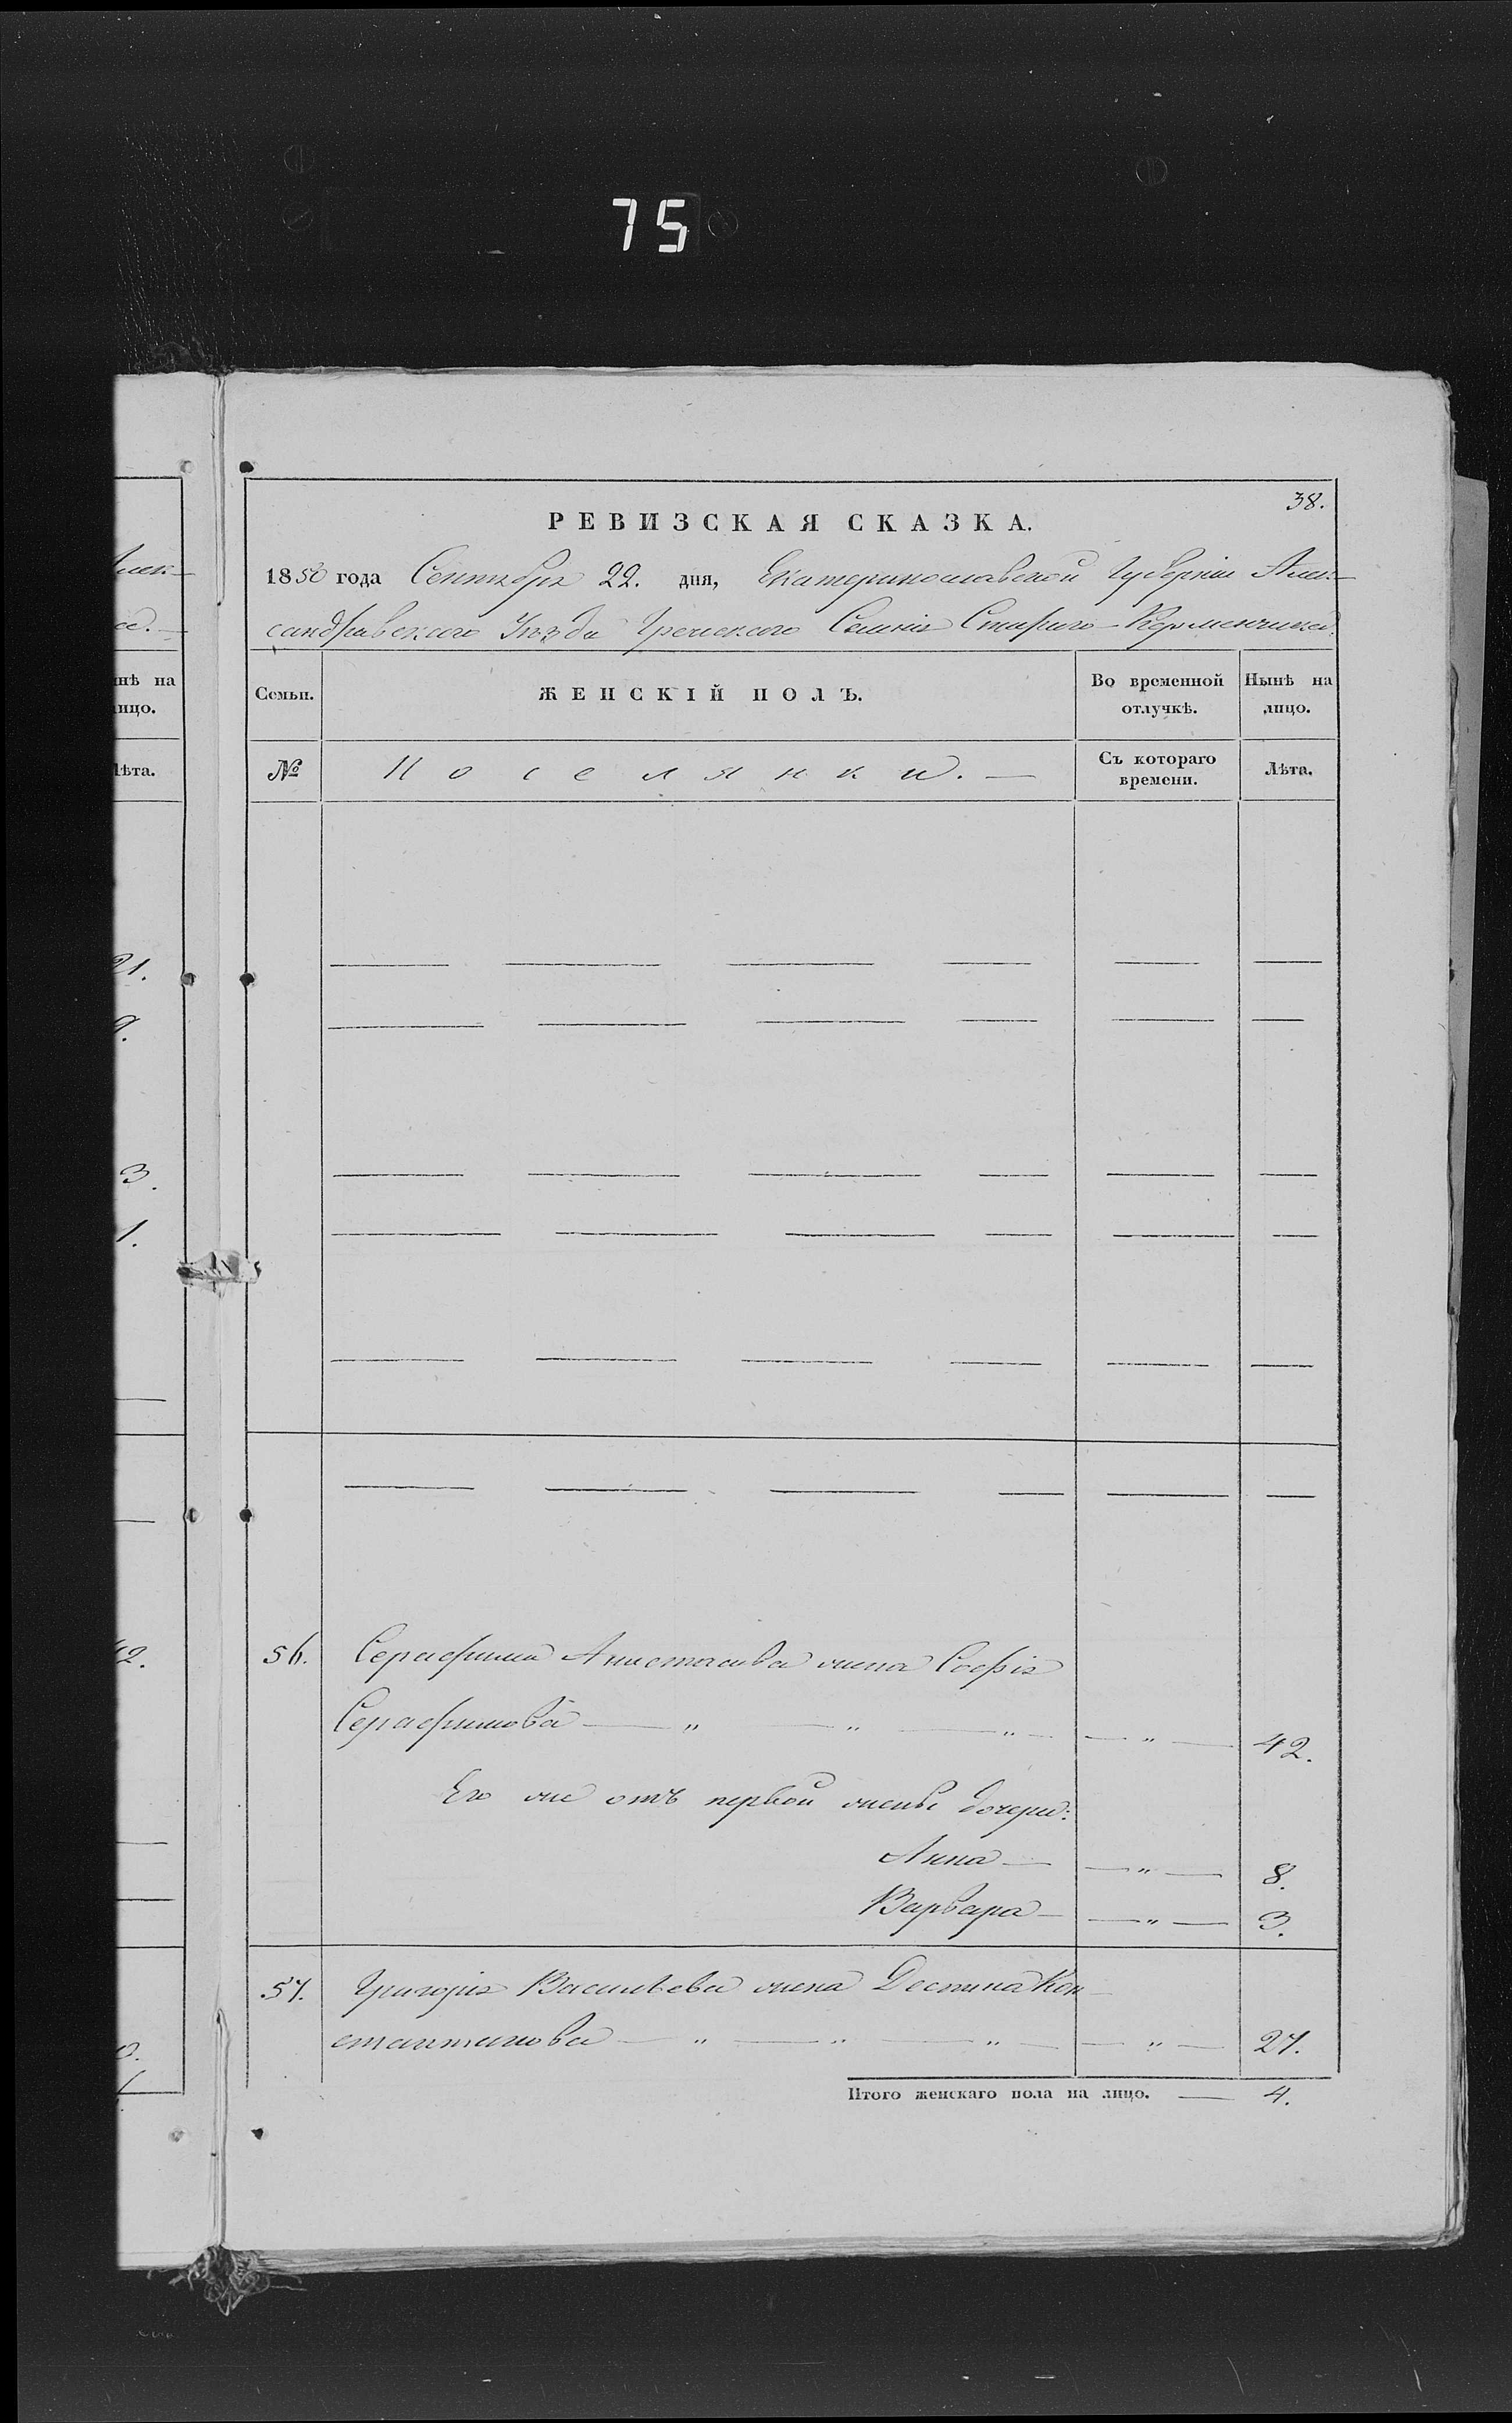 75
38.
РЕВИЗСКАЯ СКАЗКА.
1850 года Сентября 22. дня, Екатеринославской Губернии Алек-
сандровскаго Уѣзда Греческаго Селенія Стараго-Керменчика.
Семьи.
ЖЕНСКІЙ ПОЛЪ.
Во временной отлучкѣ.
Нынѣ на лицо.
№
Поселянки.
Съ котораго времени.
Лѣта.
56. Серафима Анастасова жена Софія
Серафимова — „ — „ — „ — — „ — 42.
Его же отъ первой жены дочери:
Анна — — „ — 8.
Варвара — — „ — 3.
57. Григорія Васильева жена Деспина Кон-
стантинова — „ — „ — „ — — „ — 27.
Итого женскаго пола на лицо. — 4.